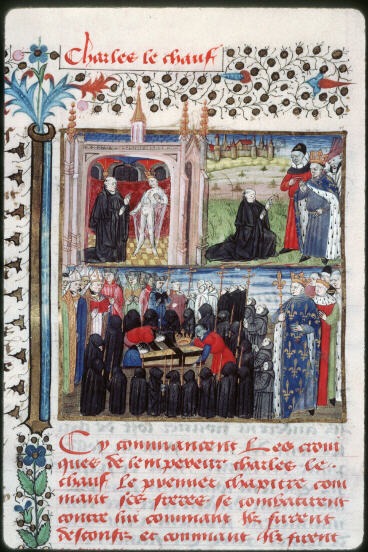 Charles le chauf
Cy commancent Les croni
ques de lempereur charles le
chauf Le premier chapitre com
mant ses freres se combatirent
contre lui commant ilz furent
desconfiz et commant ilz furent